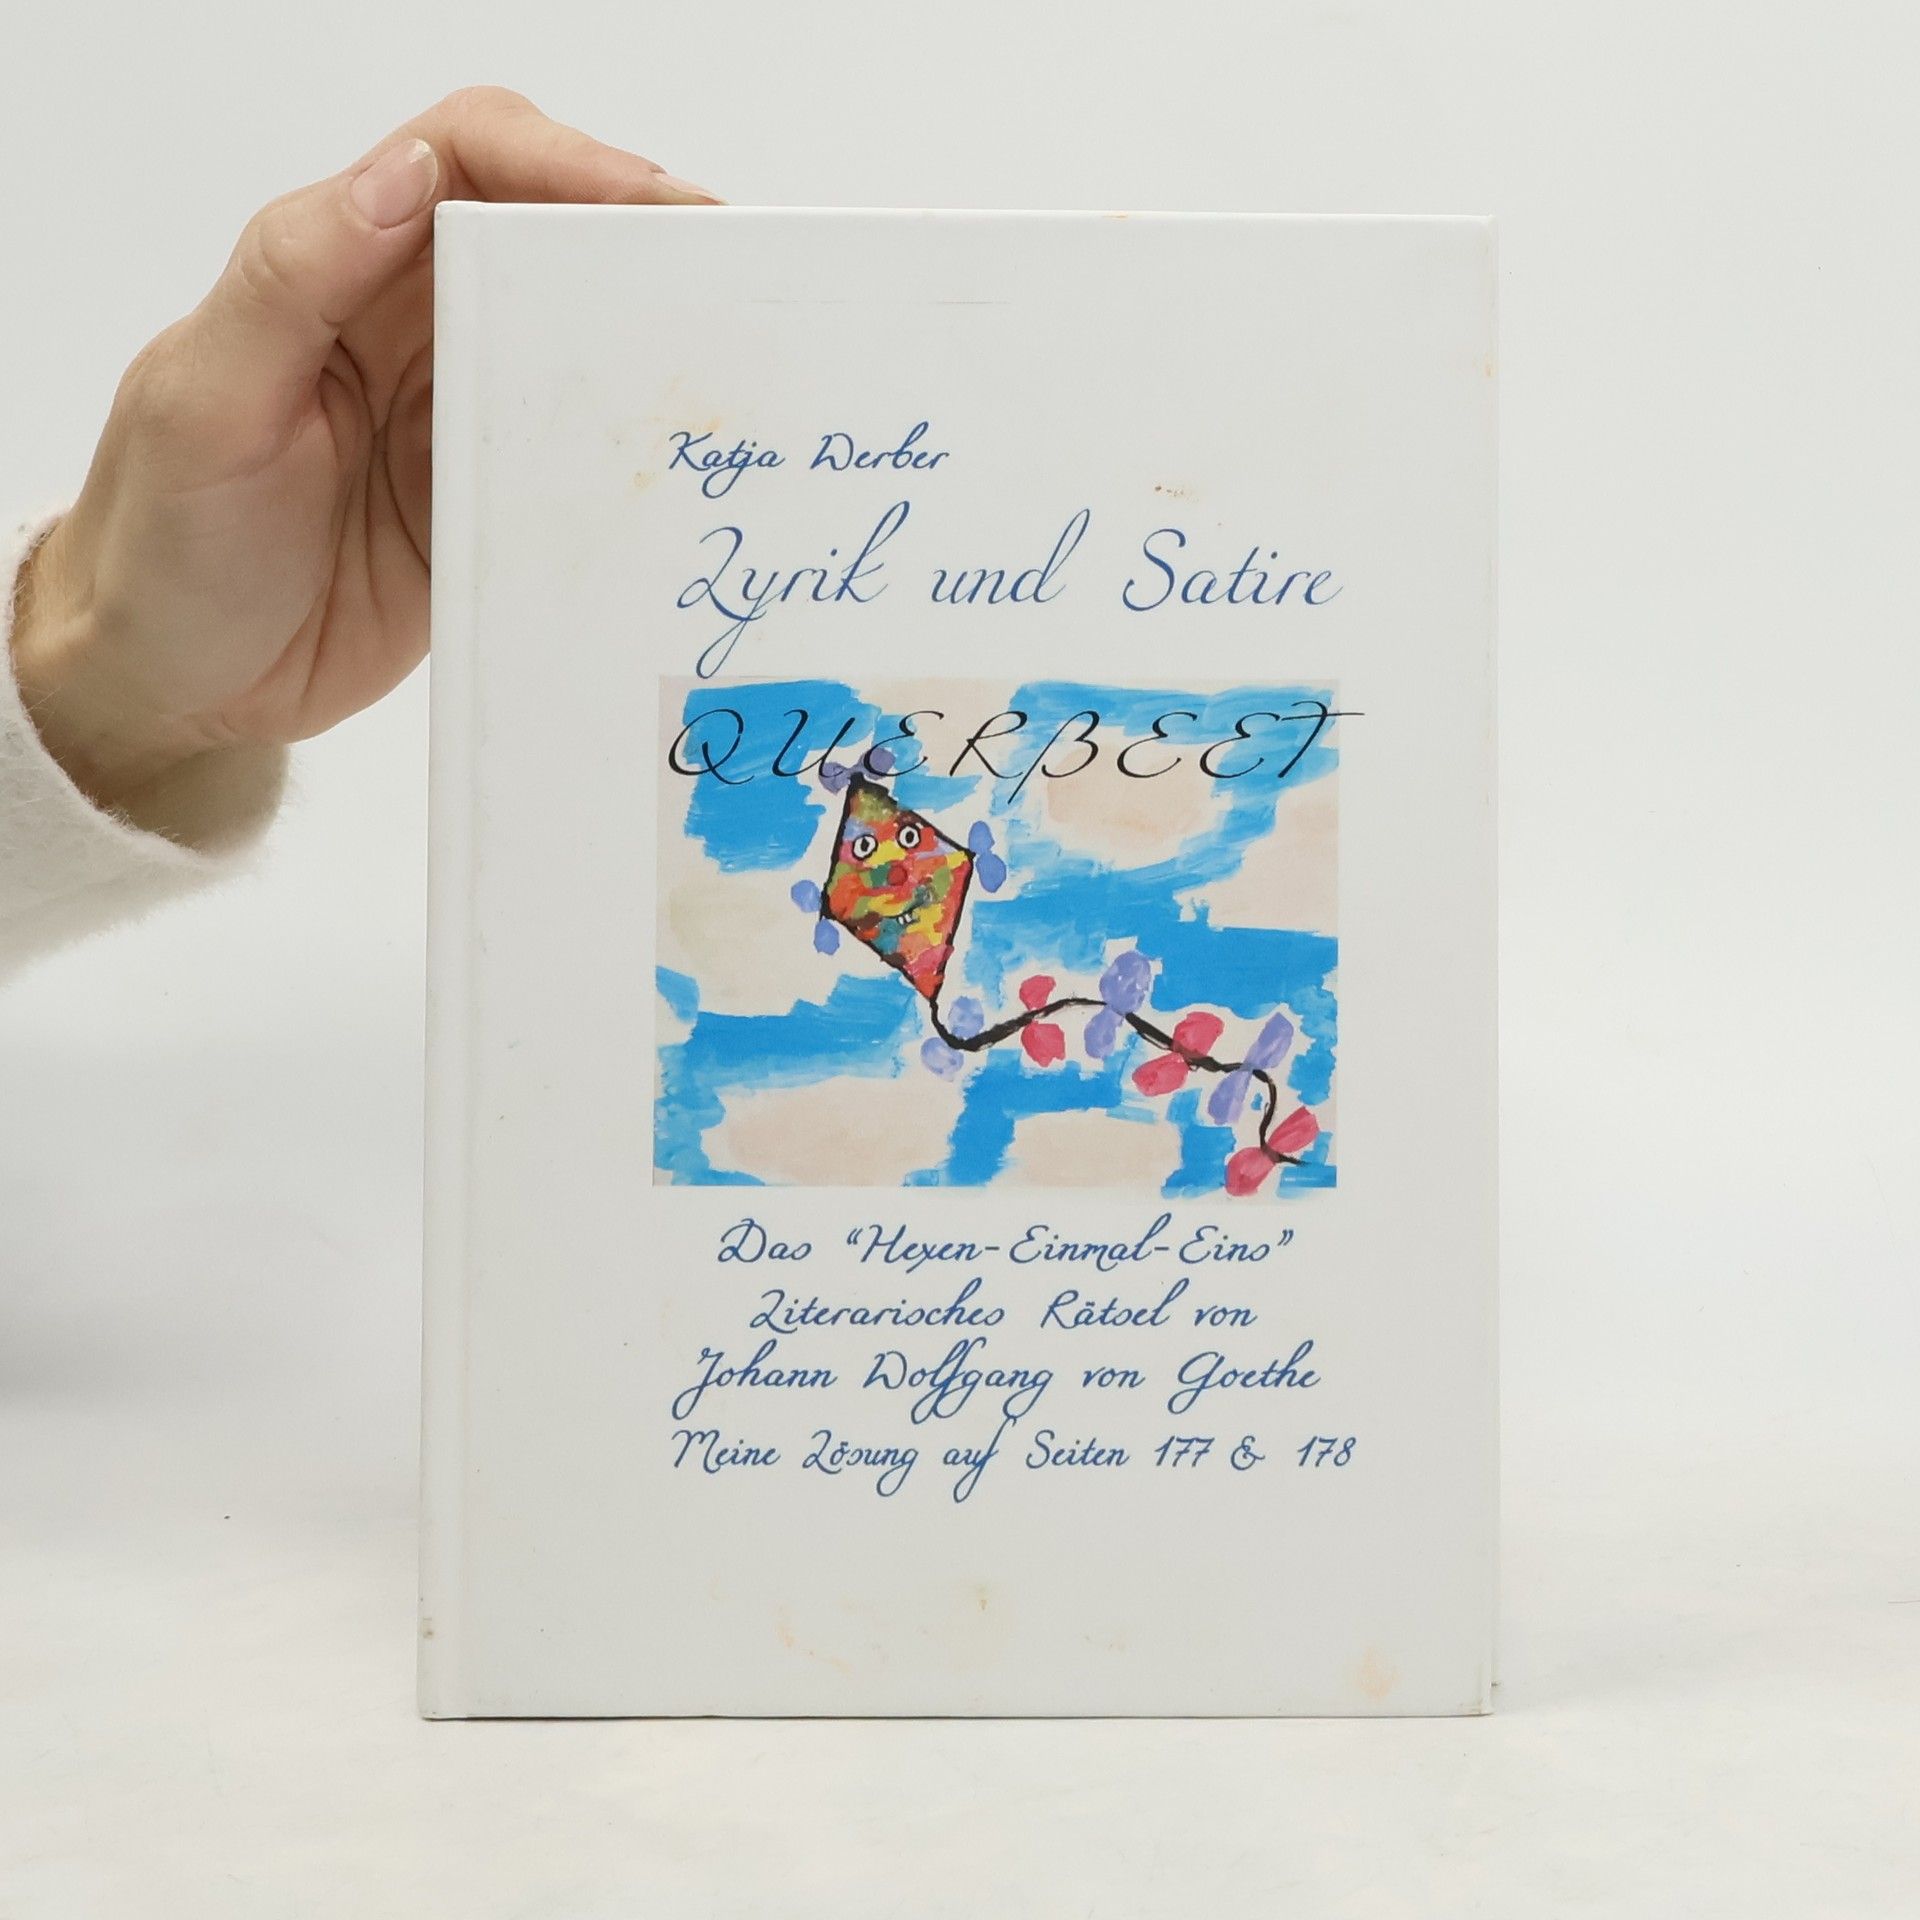 Katja Werber
Lyrik und Satire
QUERBEET
Das "Hexen-Einmal-Eins"
Literarisches Rätsel von
Johann Wolfgang von Goethe
Meine Lösung auf Seiten 177 & 178